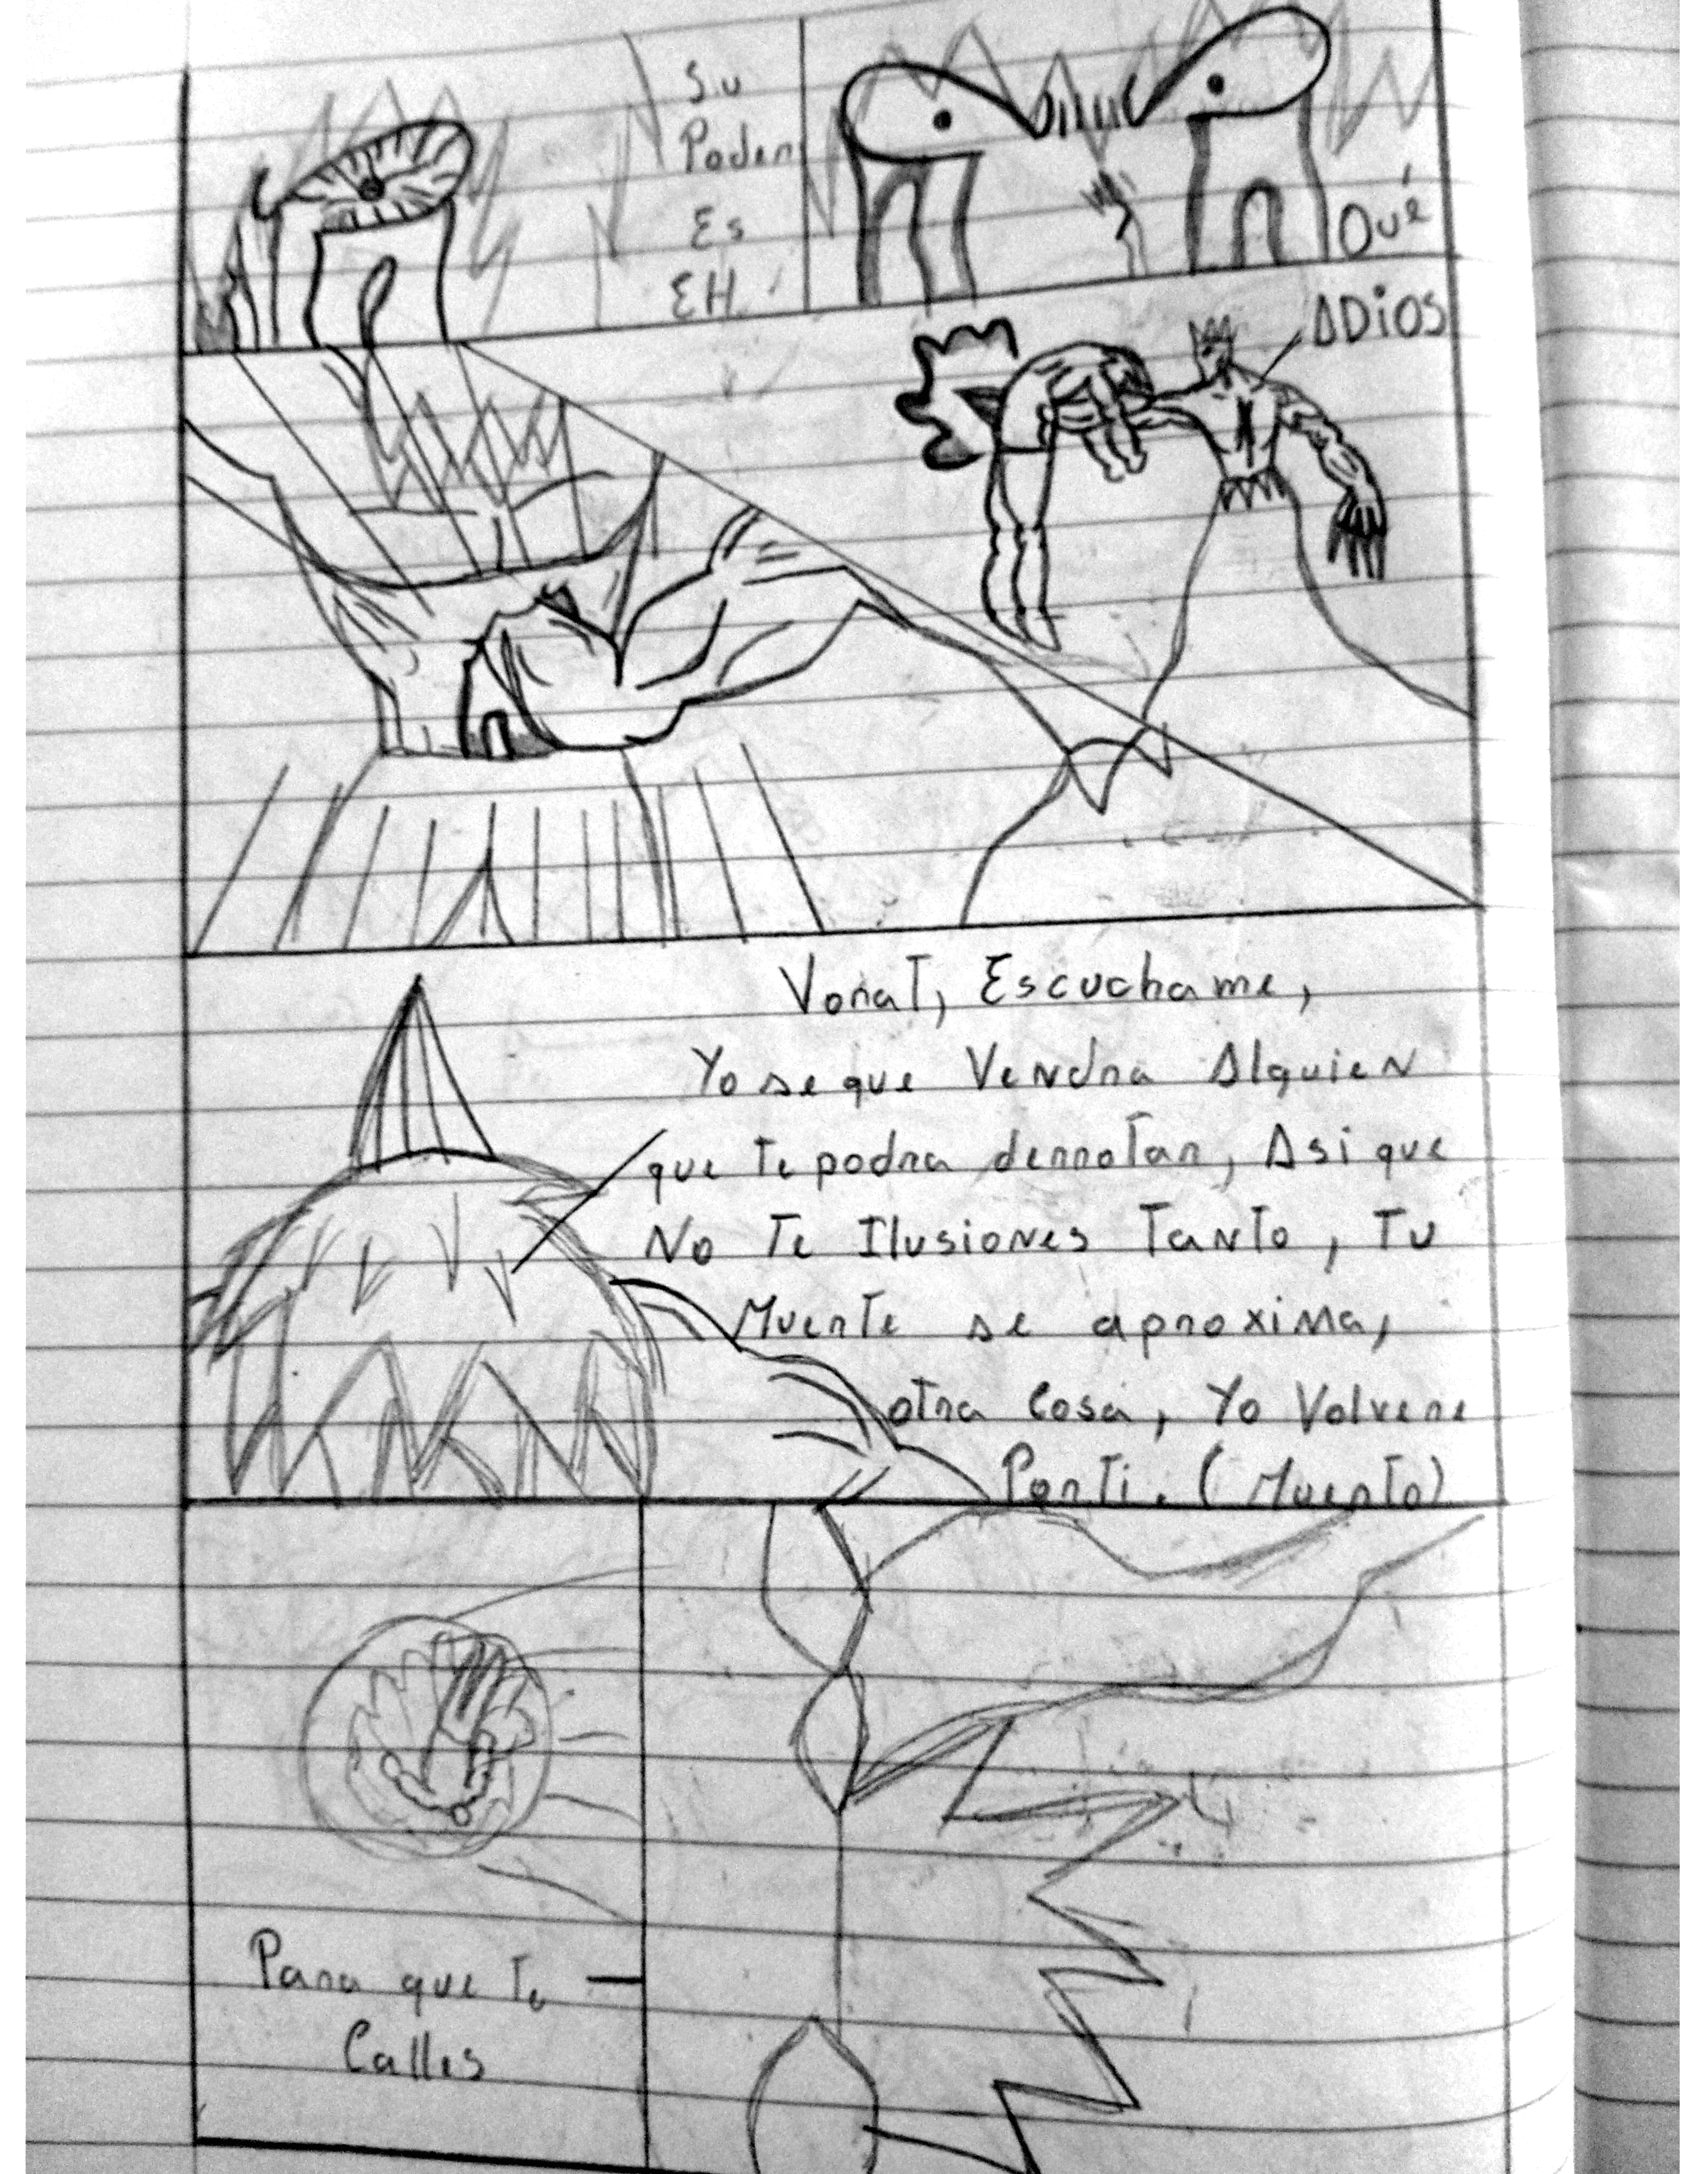 Su
Poder
Es
EH!
Qué
ADiOS
Vorat, Escuchame,
Yo se que Vendra Alguien
que te podra derrotar, Asi que
No Te Ilusiones Tanto, Tu
Muerte se aproxima,
otra Cosa, Yo Volvere
Por Ti. (Muerto)
Para que Te
Calles